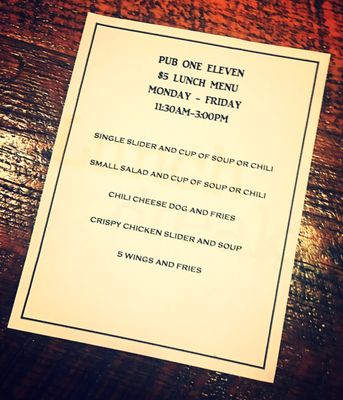 PUB ONE ELEVEN
$5 LUNCH MENU
MONDAY - FRIDAY
11:30AM-3:00PM
SINGLE SLIDER AND CUP OF SOUP OR CHILI
SMALL SALAD AND CUP OF SOUP OR CHILI
CHILI CHEESE DOG AND FRIES
CRISPY CHICKEN SLIDER AND SOUP
5 WINGS AND FRIES